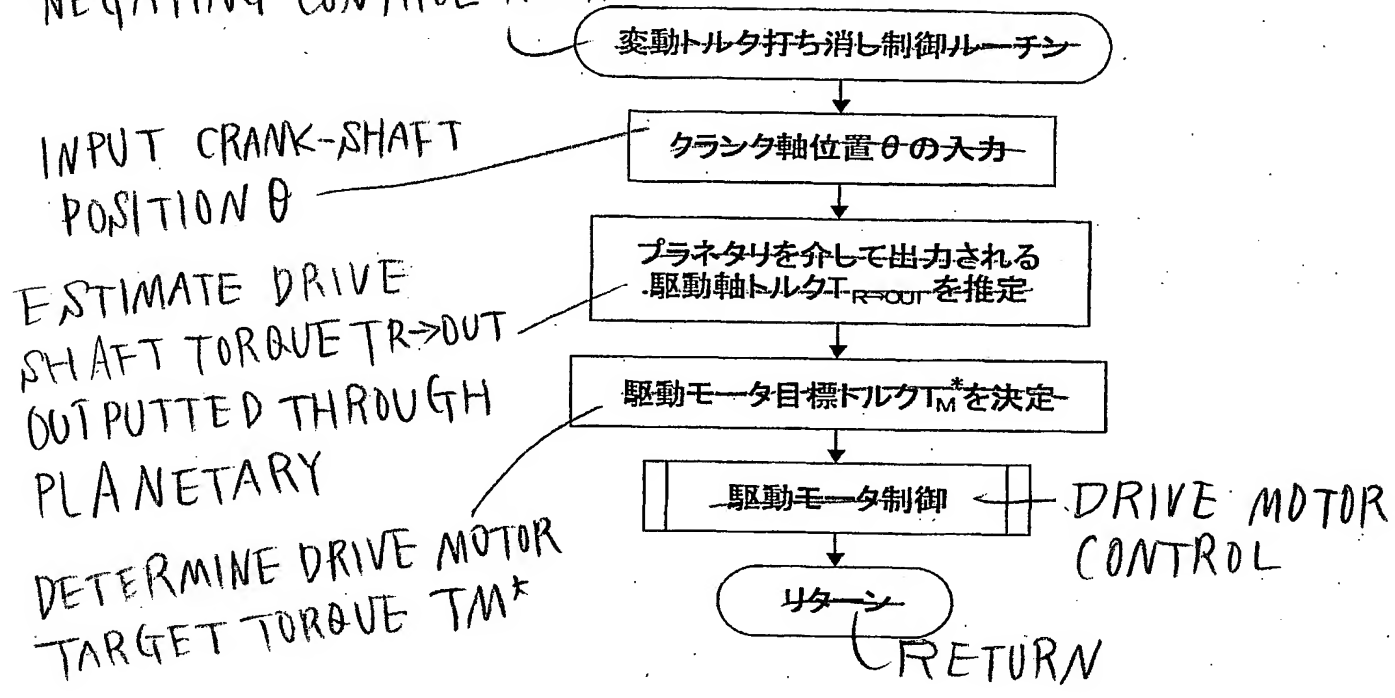 NEGATING CONTROL
変動トルク打ち消し制御ルーチン
INPUT CRANK-SHAFT
POSITION θ
クランク軸位置θの入力
ESTIMATE DRIVE
SHAFT TORQUE TR→OUT
OUTPUTTED THROUGH
PLANETARY
プラネタリを介して出力される
駆動軸トルクT_R→OUTを推定
DETERMINE DRIVE MOTOR
TARGET TORQUE TM*
駆動モータ目標トルクT_M*を決定
駆動モータ制御
DRIVE MOTOR
CONTROL
リターン
RETURN